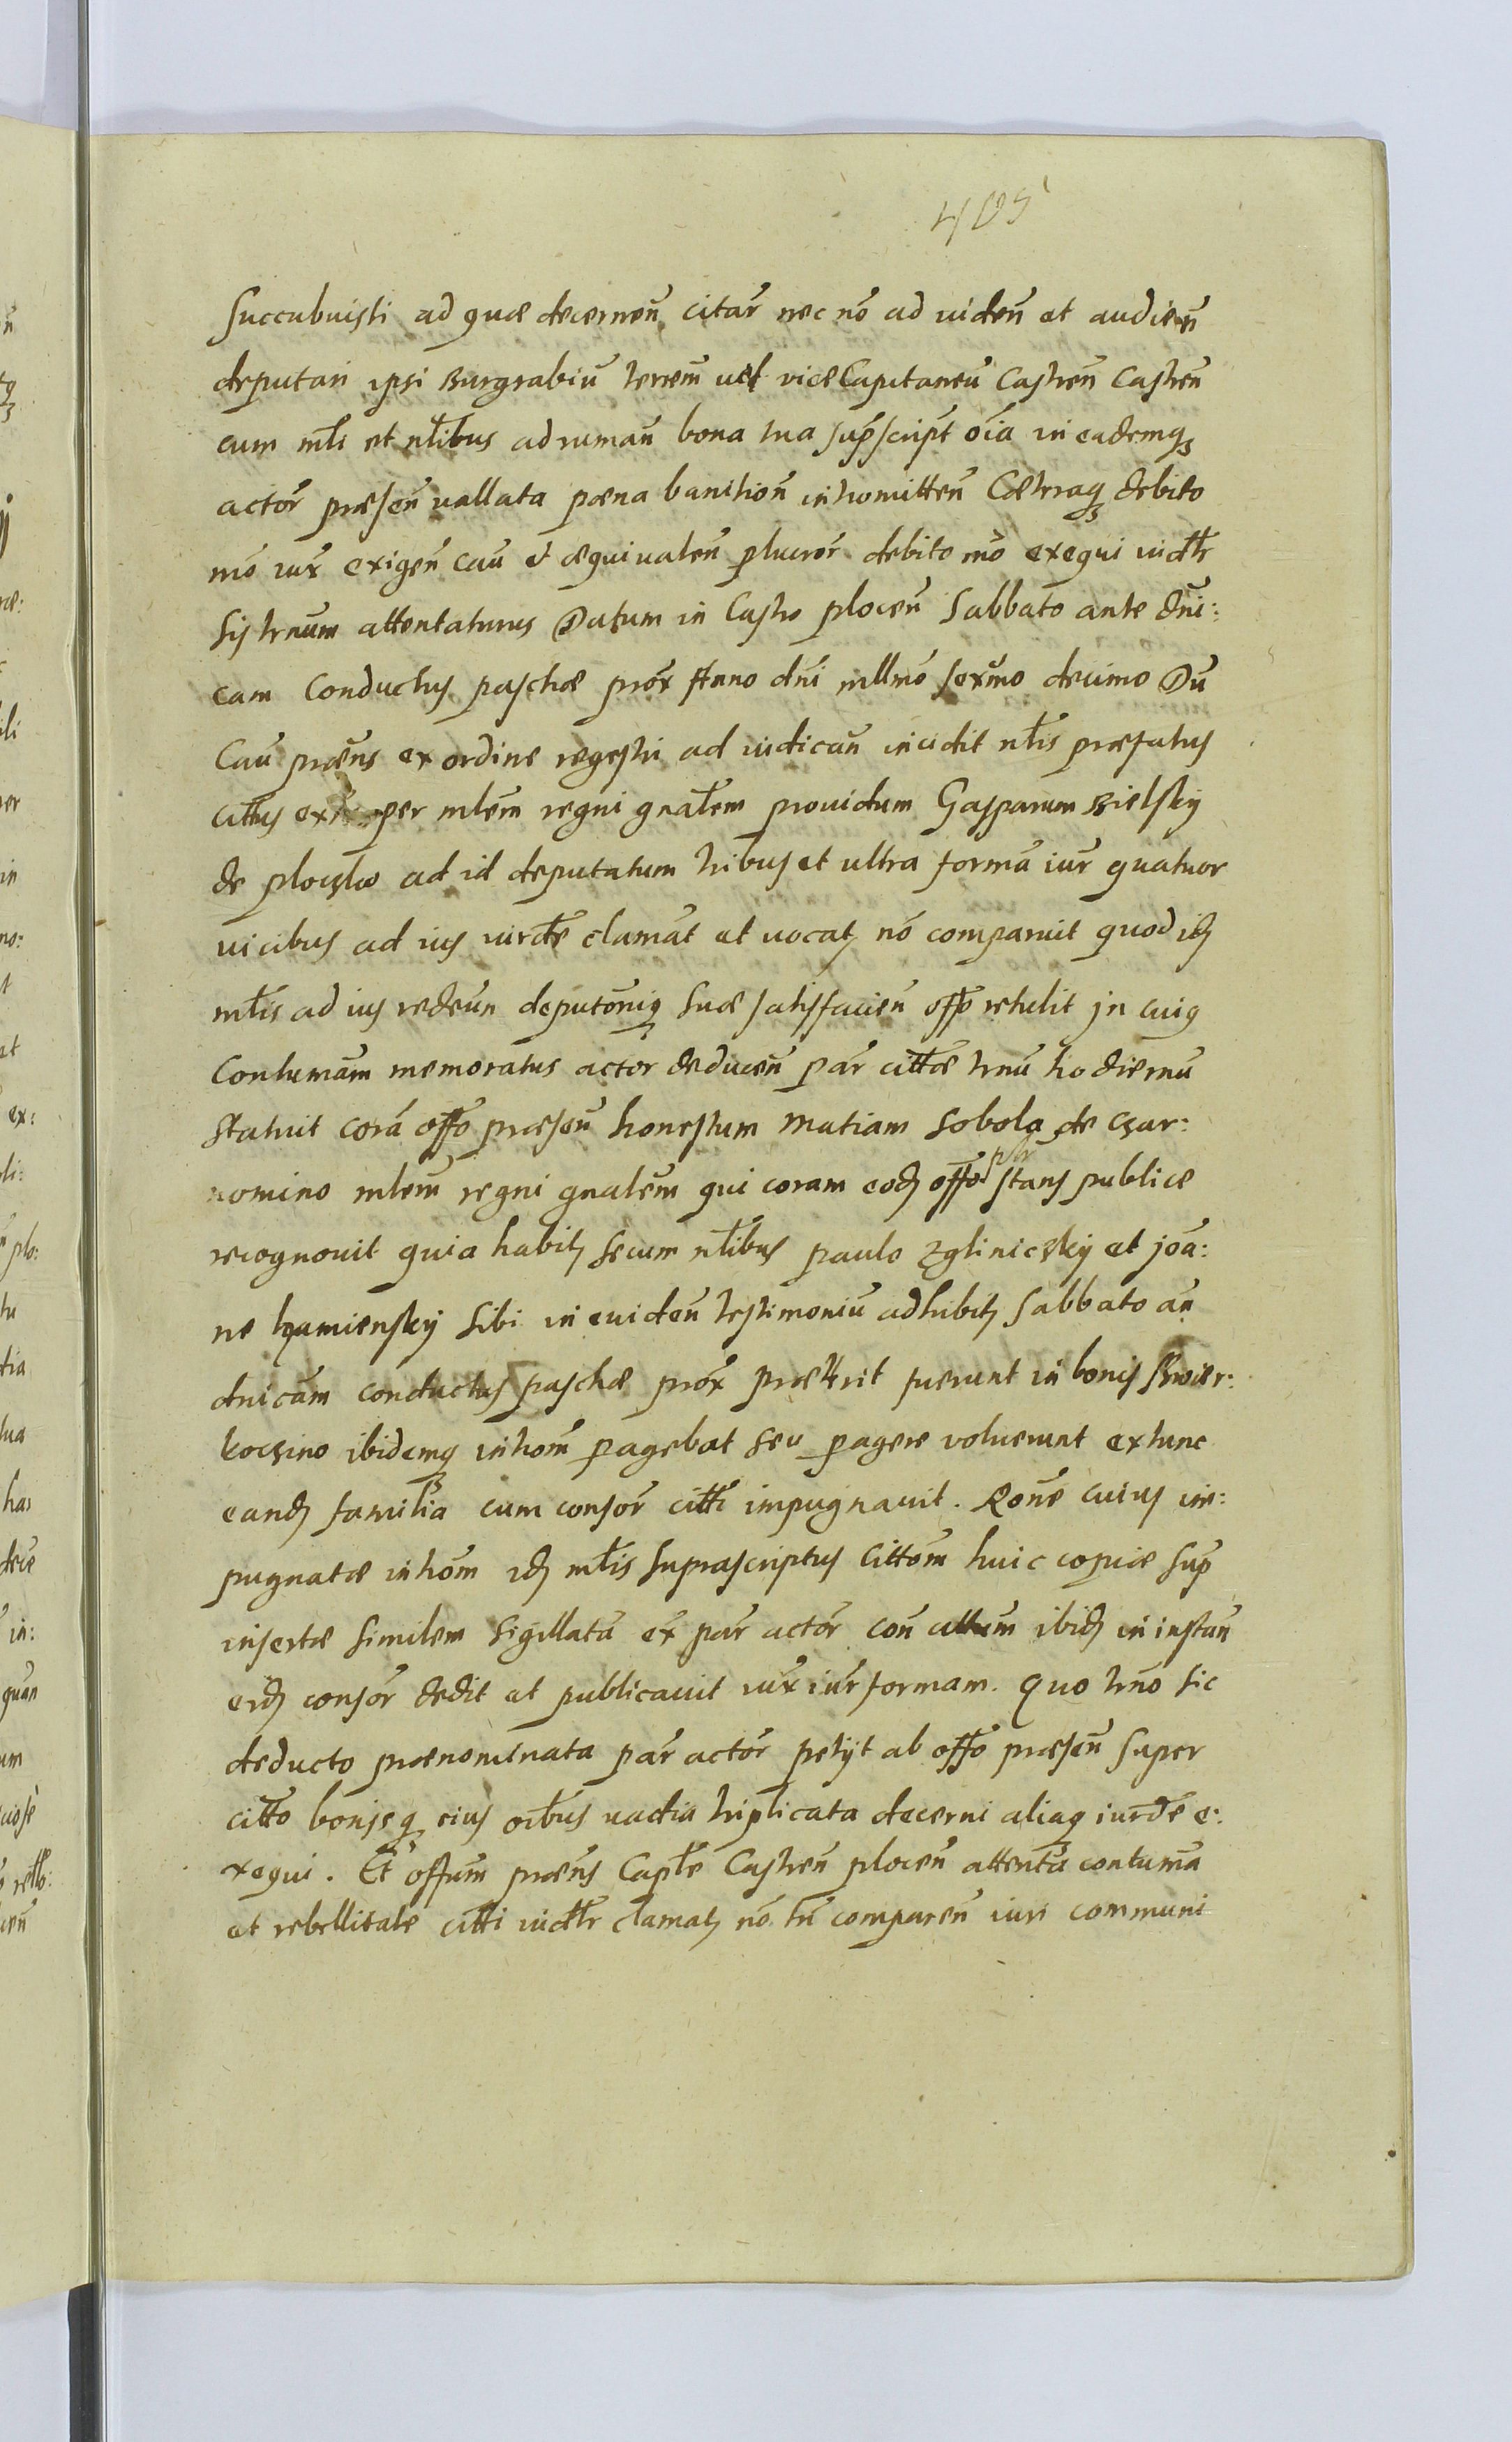 405
Succubuisti ad quæ decernen̄ citar̄ nec nō ad viden̄ et audien̄
deputari ipsi Burgrabiū terrem̄ vel viceCapitaneū Castren̄ Castren̄
cum młi et nłibus ad ruman̄ bona tua sup̄script̄ oīa in eademq̨
actor̄ præsen̄ vallata pœna banition̄ intromitten̄ Cætraq̨ debito
mō iux̄ exigen̄ cau̅ et æquivalen̄ plurior̄ debito mō exequi iudłr
Sis trnum̄ attentaturus Datum in Castro plocen̄ Sabbato ante dni:
cam Conductus paschæ prox̄ Anno dn̄i mllmō sex̄mo decimo Du̅
Cau̅ præn̄s ex ordine regestri ad iudican̄ incidit nłis præfatus
cittus per mlem̄ regni gnałem providum Gasparum Bielsky
de plocsko ad id deputatum tribus et ultra formā iur̄ quatuor
vicibus ad ius iurdłe clamāt et vocat̨ nō comparuit quod id̨
młis ad ius redeun̄ deputōniq̨ suæ satisfacien̄ offō retulit jn cuiq̨
Contumām memoratus actor deducen̄ pār cittæ trnū hodiernū
statuit corā offō præsen̄ honestum Matiam Sobola de Czar:
nomino mlem̄ regni gnałem̄ qui coram eod̨ offō pr̄ stans publice
recognovit quia habit̨ secum nłibus paulo Zgliniczky et joā:
ne kamiensky sibi in eviden̄ testimoniū adhibit̨ Sabbato an̄
dnicām conductus paschæ prox̄ præterit fuerunt in bonis skwier:
koczino ibidemq̨ intrōm pagebat seu pagere voluerunt extunc
eand̨ familia cum consor̄ citti impugnavit. Rōne cuius im:
pugnatæ intrōm id̨ młis suprascriptus Cittōm huic copiæ sup̄
insertæ similem sigillatā ex pār actōr con̄ cittum̄ ibid̨ in instan̄
eid̨ consōr dedit et publicavit iux̄ iur̄ formam. Quo trnō sic
deducto prænominata pār actōr petÿt ab offō præsen̄ super
cittō bonisq̨ eius oībus vadia triplicata decerni aliaq̨ iurdłe e:
xequi. Et offum̄ præn̄s Capłe Castren̄ plocen̄ attenta contumā
et rebellitate citti iudłr clamat̨ nō tn̄ comparen̄ iuri communi